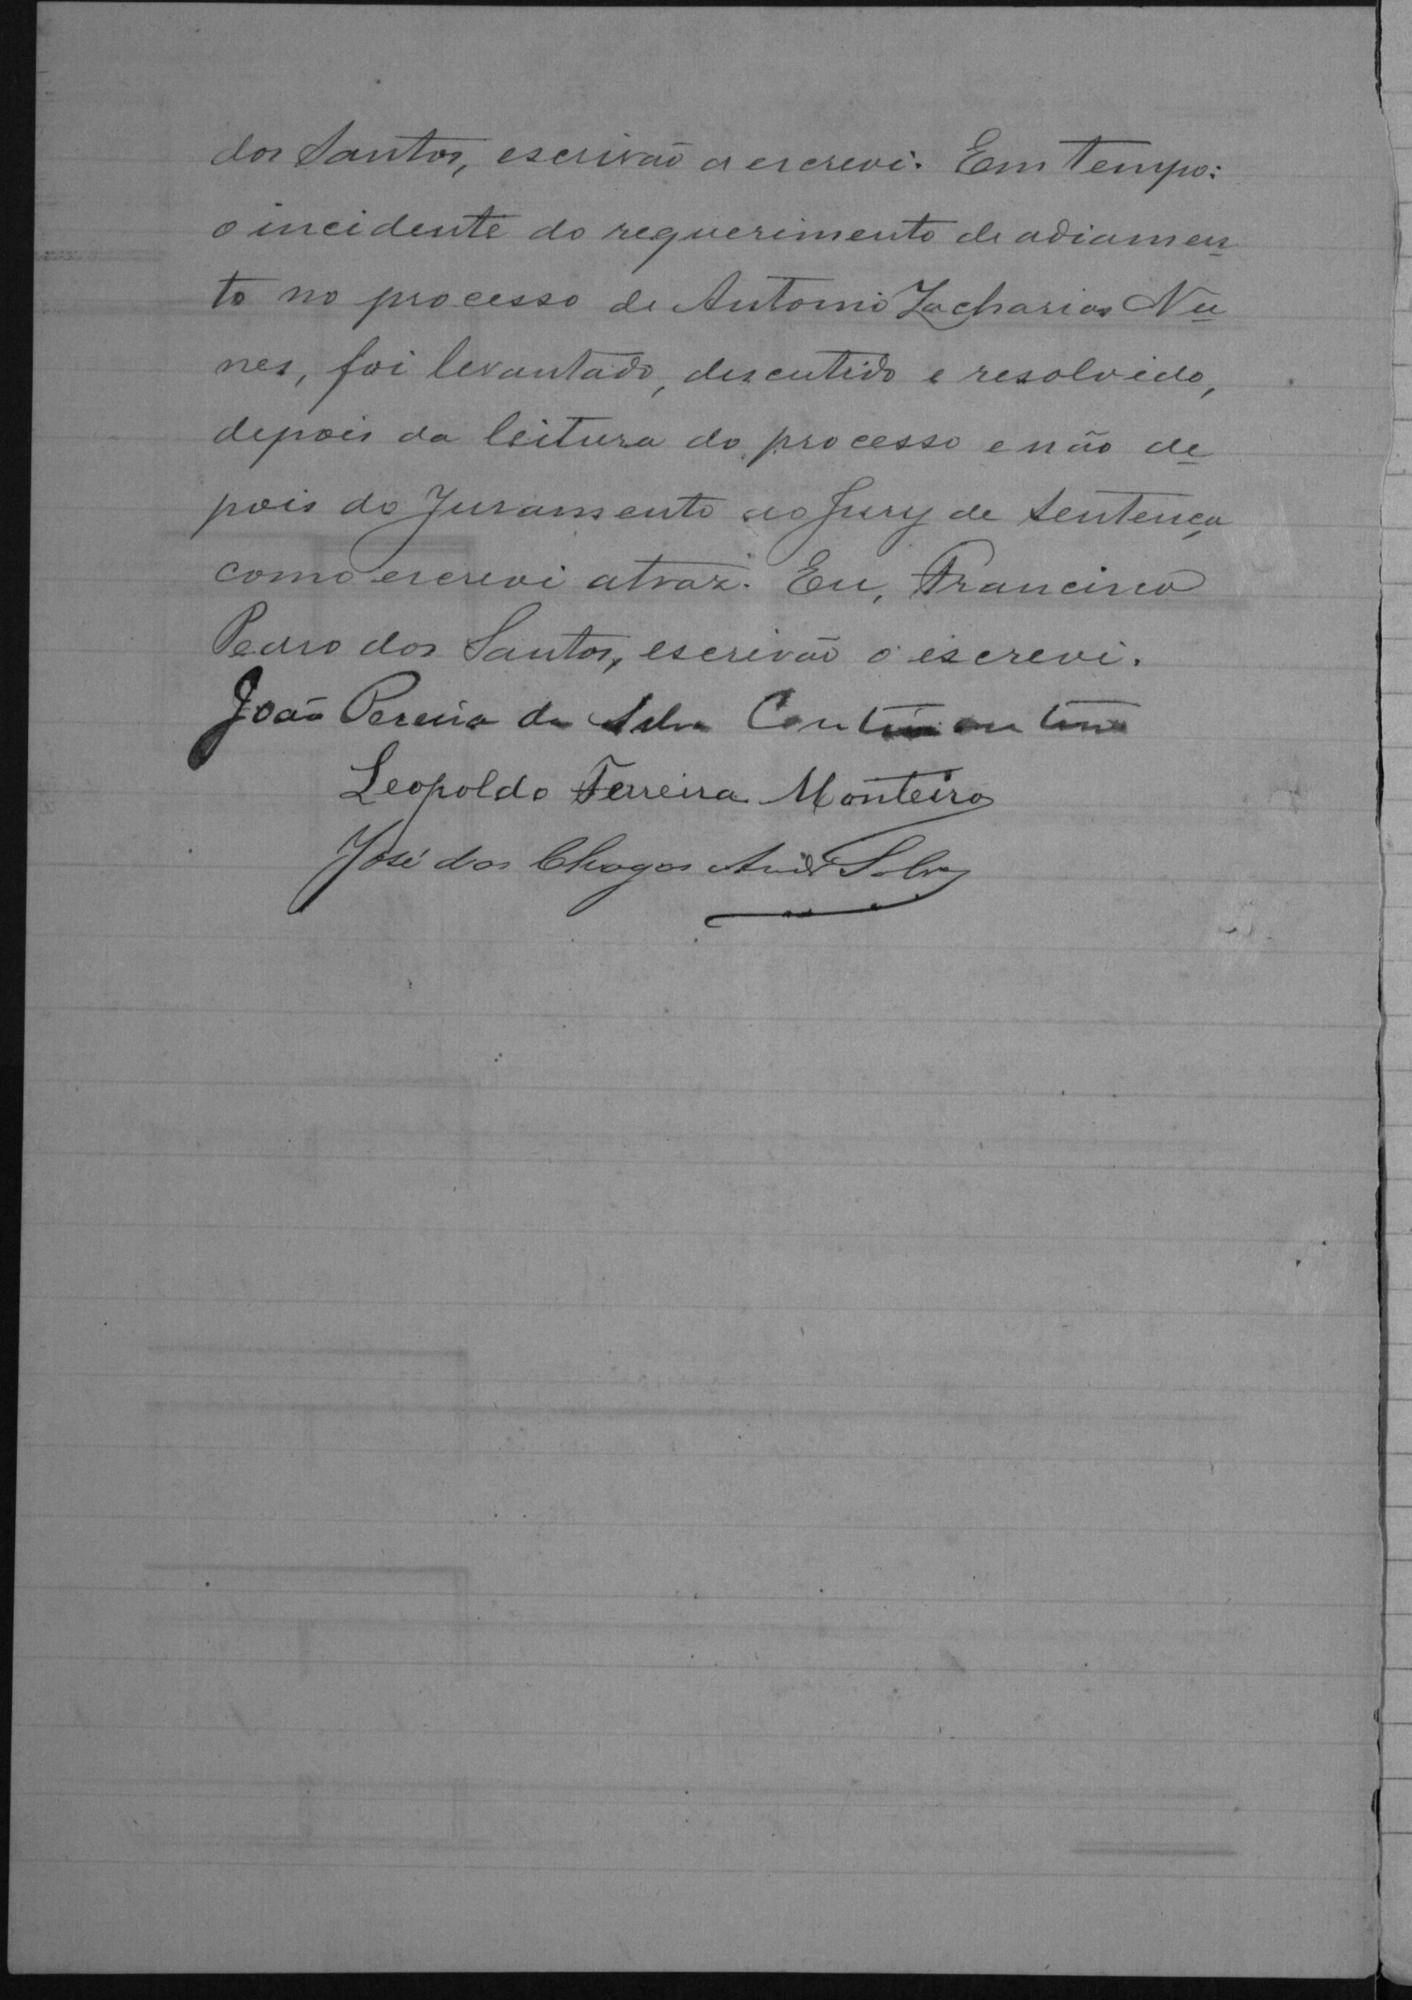 dos Santos, escrivão a escrevi. Em tempo:
o incidente do requerimento de adiamen
to no processo de Antonio Zacharias Nu
nes, foi levantado, descutido e resolvido,
depois da leitura do processo e não de
pois do Juramento ao Jury de Sentença
como escrevi atraz. Eu, Francisco
Pedro dos Santos, escrivão o escrevi.
João Pereira da Silva Continentino
Leopoldo Ferreira Monteiro
José das Chagas Silva